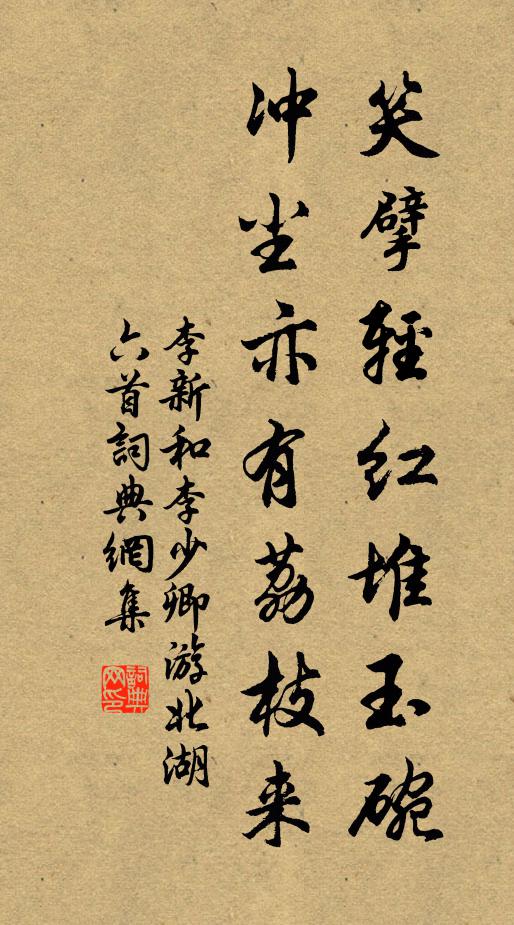 笑擘輕紅堆玉碗
冲尘亦有荔枝来
李新和李少卿游北湖
六首詞典網集
詞典网印